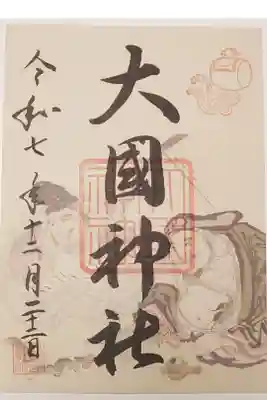 大國神社
令和七年十二月二十二日